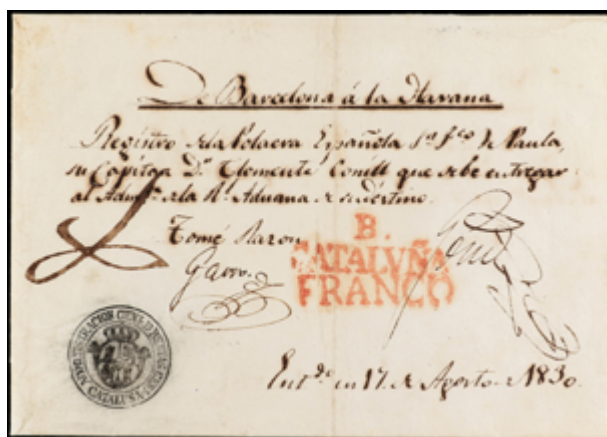 De Barcelona á la Havana
Registro de la Polacra Española Sn. Fco. de Paula,
su Capitan Dn. Clemente Comill que debe entregar
al Admor. de la Rl. Aduana de su destino.
Tomé Razon
B.
CATALUÑA
FRANCO
CATALUÑA
en 17 de Agosto de 1830.